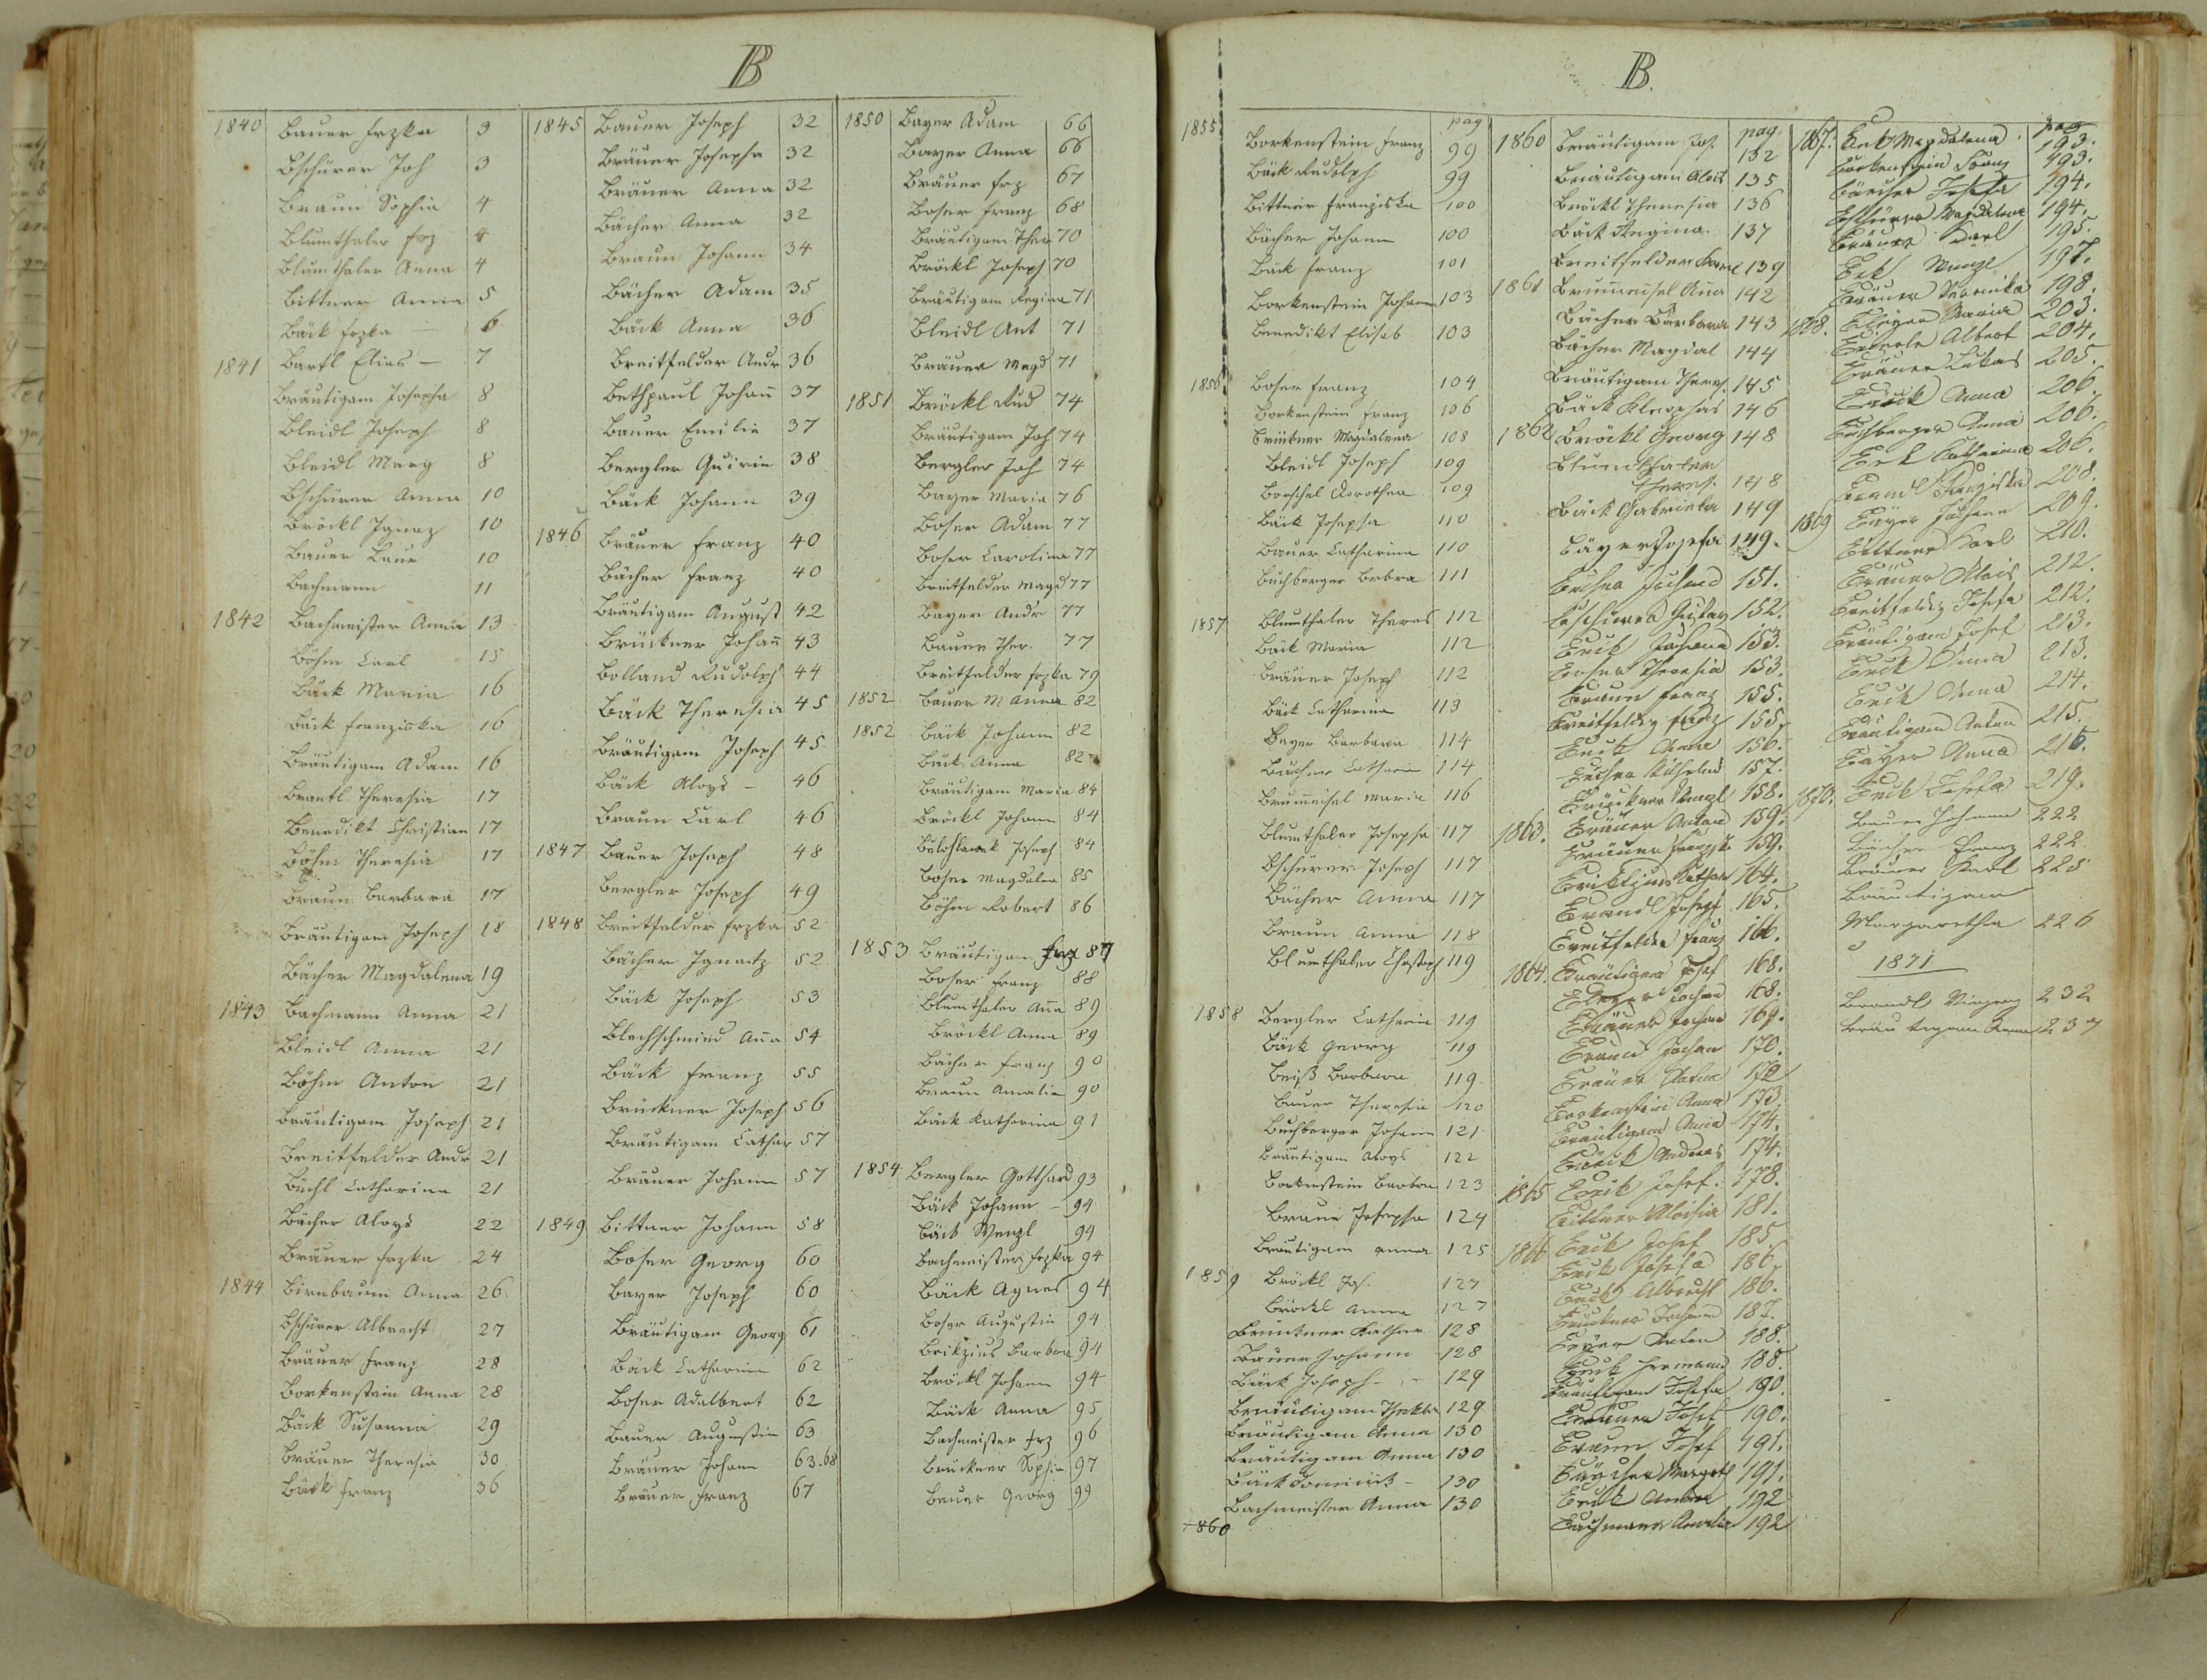 B
1840 Bauer Frzka 3
Bschürer Joh 3
Braun Sophia 4
Blumthaler Frz 4
Blumthaler Anna 4
Bittner Anna 5
Bäck Frzka — 6
1841 Bartl Elias — 7
Bräutigam Josepha 8
Bleidl Joseph 8
Bleidl Marg 8
Bschürer Anna 10
Bröckl Ignaz 10
Bauer Laur 10
Bachmann 11
1842 Bachmeister Anna 13
Böhm Carl 15
Bäck Maria 16
Bäck Franziska 16
Bräutigam Adam 16
Brantl Theresia 17
Benedikt Christian 17
Böhm Theresia 17
Braun Barbara 17
Bräutigam Joseph 18
Bächer Magdalena 19
1843 Bachmann Anna 21
Bleidl Anna 21
Böhm Anton 21
Bräutigam Joseph 21
Breitfelder Andr 21
Büchl Catharina 21
Bächer Aloys 22
Bräuer Frzka 24
1844 Birnbaum Anna 26
Bschürer Albrecht 27
Bräuer Franz 28
Borkenstein Anna 28
Bäck Susanna 29
Bräuer Theresia 30
Bäck Franz 36
1845 Bauer Joseph 32
Bräuer Josepha 32
Bräuer Anna 32
Bächer Anna 32
Braun Johann 34
Bächer Adam 35
Bäck Anna 36
Breitfelder Andr 36
Bethpaul Johañ 37
Bauer Emilie 37
Bergler Quirin 38
Bäck Johann 39
1846 Bräuer Franz 40
Bächer Franz 40
Bräutigam August 42
Brückner Johañ 43
Bolland Rudolph 44
Bäck Theresia 45
Bräutigam Joseph 45
Bäck Aloys — 46
Braun Carl 46
1847 Bauer Joseph 48
Bergler Joseph 49
1848 Breitfelder Frzka 52
Bächer Ignatz 52
Bäck Joseph 53
Blechschmied Aña 54
Bäck Franz 55
Brückner Joseph 56
Bräutigam Cathar 57
Bräuer Johann 57
1849 Bittner Johann 58
Boser Georg 60
Bayer Joseph 60
Bräutigam Georg 61
Bäck Catharina 62
Boser Adalbert 62
Bauer Augustin 63
Bräuer Johann 63.68
Bräuer Franz 67
1850 Bayer Adam 66
Bayer Anna 66
Bräuer Frz 67
Boser Franz 68
Bräutigam Ther 70
Bröckl Joseph 70
Bräutigam Regina 71
Bleidl Ant 71
Bräuer Magd 71
1851 Bröckl Rud 74
Bräutigam Joh 74
Bergler Joh 74
Bayer Maria 76
Boser Adam 77
Boser Carolina 77
Breitfelder Magd 77
Bayer Andr 77
Bauer Ther. 77
Breitfelder Frzka 79
1852 Bauer M Anna 82
1852 Bäck Johann 82
Bäck Anna 82
Bräutigam Maria 84
Bröckl Johann 84
Joseph 84
Boser Magdalen 85
Böhm Robert 86
1853 Bräutigam Frz 87
Boser Franz 88
Blumthaler Aña 89
Bröckl Anna 89
Bächer Franz 90
Braun Amalie 90
Bäck Katharina 91
1854 Bergler Gotthard 93
Bäck Johann — 94
Bäck Wenzl 94
Bachmeister Frzka 94
Bäck Agnes 94
Boser Augustin 94
Brikzius Barbra 94
Bröckl Johann 94
Bäck Anna 95
Bachmeister Frz 96
Brückner Sophie 97
Bauer Georg 99
B.
pag
1855 Borkenstein Franz 99
Bäck Rudolph 99
Bittner Franziska 100
Bächer Johann 100
Bäck Franz 101
Borkenstein Johann 103
Benedikt Elisab 103
1856 Boser Franz 104
Borkenstein Franz 106
Brückner Magdalena 108
Bleidl Joseph 109
Borschel Dorothea 109
Bäck Josepha 110
Bauer Catharina 110
Buchberger Brbra 111
1857 Blumthaler Theres 112
Bäck Maria 112
Bräuer Joseph 112
Bäck Catharina 113
Bayer Barbara 114
Bucher Catharin 114
Brum̃eisel Maria 116
Blumthaler Josepha 117
Bschürer Joseph 117
Bächer Anna 117
Braun Anna 118
Blumthaler Christoph 119
1858 Bergler Catharin 119
Bäck Georg 119
Beiß Barbara 119
Bauer Theresia 120
Buchberger Johann 121
Bräutigam Aloys 122
Borkenstein Barbra 123
Braun Josepha 124
Bräutigam Anna 125
1859 Bröckl Jos. 127
Bröckl Anna 127
Brückner Kathar 128
Bauer Johann 128
Bäck Joseph — 129
Bräutigam Thekla 129
Bräutigam Anna 130
Bräutigam Anna 130
Bäck Dominik — 130
Bachmeister Anna 130
1860
pag.
1860 Bräutigam Jos. 132
Bräutigam Alois 135
Bröckl Theresia 136
Bäck Regina. 137
Breitfelder 139
1861 Brum̃eisel Aña 142
Bächer Barbara 143
Bächer Magdal 144
Bräutigam Theres. 145
Bäck Kleophas 146
1862 Bröckl Georg 148
Blumthaler
Theres. 148
Bäck Gabriela 149
Bäyer Josefa 149.
151.
Bschierer Gustav 152.
Beck Johann 153.
Boser Theresia 153.
Brauer Franz 155.
Breitfelder Franz 155.
Beck Anna 156.
Wilhelm 157.
Brückner Wenzl 158.
1863. Bräuer Anton 159.
Bräuer 159.
Brikzius Kathar 164.
Brandl Josef 165.
Breitfelder Franz 166.
1864. Bräutigam Josef 168.
Johan 168.
Bräuer Johan 169.
Braun Johan 170.
Bräuer 172
Borkenstein Anna 173
Bräutigam Anna 174.
Bäck Andreas 174.
1865 Beck Josef. 178.
Bittner Aloisia 181.
1866 Beck Josef 185
Beck Josefa 186.
Beck Albrecht 186.
Brückner Johann 187.
Beyer Anton 188.
Beck Hermann 188.
Bräutigam Josefa 190.
Bräuer Josef 190.
Braun Josef 191.
Margreth 191.
Beck 192
Bachmann Amalia 192
pag
1867. Beck Magdalena 193.
Borkenstein Franz 193.
Josefa 194.
Bschürer Magdalena 194.
Bräuer Karl 195.
Beck Wenzl 197.
Bräuer Veronika 198.
1868. Maria 203.
Albert 204.
Bräuer Lukas 205.
Beck Anna 206.
Buchberger Anna 206.
Beck Katharina 206.
Brandl Franziska 208.
1869 Bayer Johann 209.
Bittner Karl 210.
Bräuer Alois 212.
Breitfelder Josefa 212.
Bräutigam Josef 213.
Beck Anna 213.
Beck Anna 214.
Bräutigam Anton 215.
Bayer Anna 216.
1870. Beck Josefa 219.
Bauer Johann 222
Bächer Franz 222
Bräuer Karl 225
Bräutigam
Margaretha 226
1871
Brandl 232
Bräutigam Anna 237